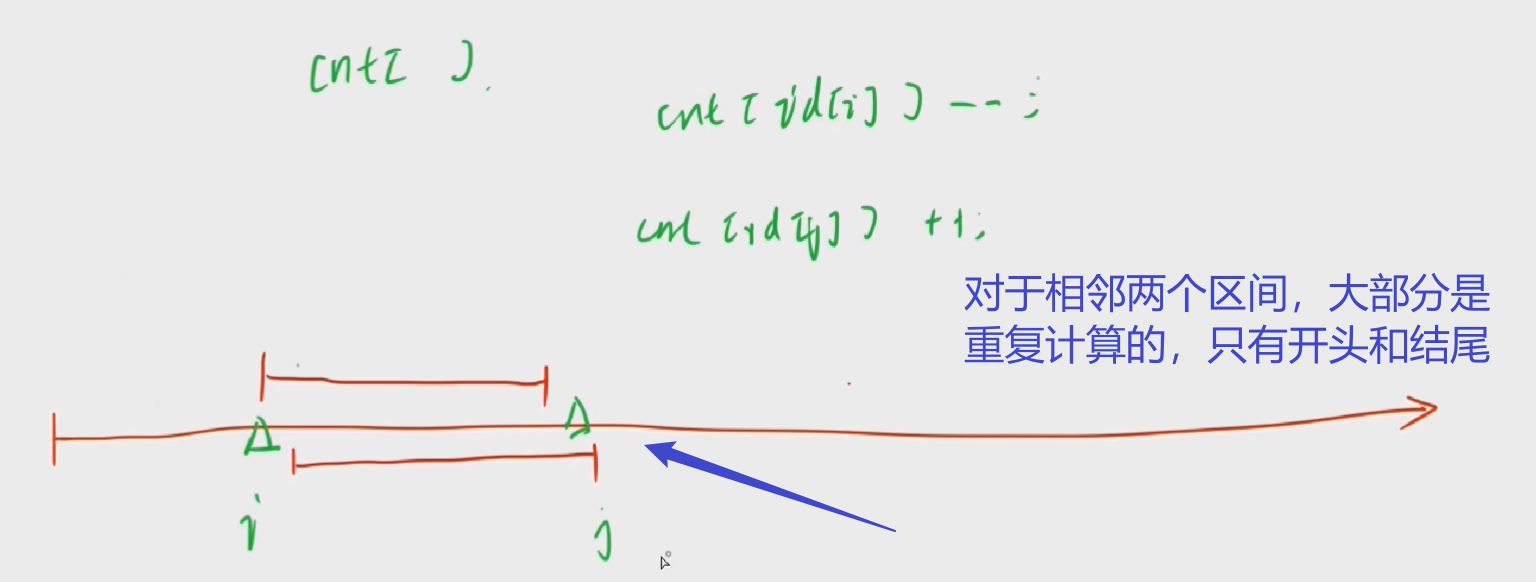 cnt[ ]
cnt[id[i]]--;
cnt[id[j]]++;
对于相邻两个区间，大部分是
重复计算的，只有开头和结尾
i
j